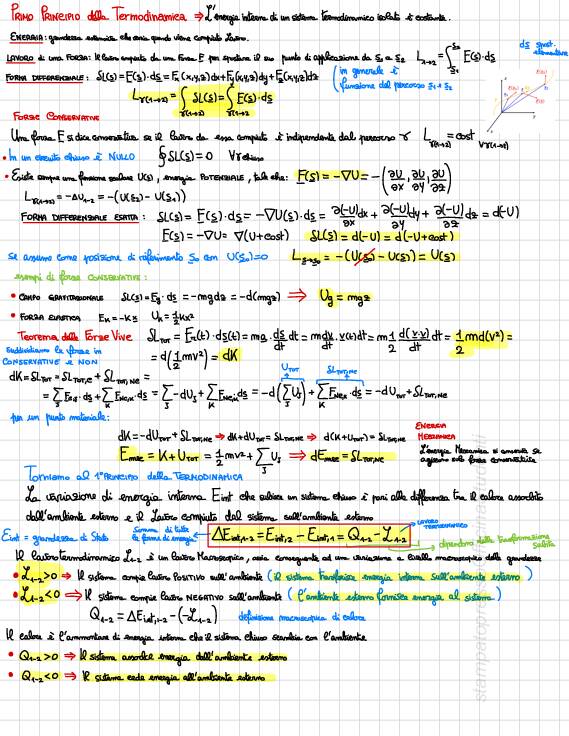 PRIMO PRINCIPIO della Termodinamica ⇒ L'energia interna di un sistema termodinamico isolato è costante.
ENERGIA: grandezza estensiva che varia quando viene compiuto lavoro.
LAVORO di una FORZA: Il lavoro compiuto da una Forza F per spostare il suo punto di applicazione da s1 a s2 L1→2 = ∫ F(s)·ds
ds spost. elementare
FORMA DIFFERENZIALE: δL(s) = F(s)·ds = Fx(x,y,z)dx + Fy(x,y,z)dy + Fz(x,y,z)dz
(in generale è funzione del percorso s1 e s2
Lγ(1→2) = ∫γ(1→2) δL(s) = ∫γ(1→2) F(s)·ds
FORZE CONSERVATIVE
Una forza F si dice conservativa se il lavoro da essa compiuto è indipendente dal percorso γ Lγ(1→2) = cost ∀γ(1→2)
• In un circuito chiuso è NULLO ∮δL(s) = 0 ∀γ chiuso
• Esiste sempre una funzione scalare U(s), energia POTENZIALE, tale che: F(s) = -∇U = -(∂U/∂x, ∂U/∂y, ∂U/∂z)
Lγ(1→2) = -ΔU1→2 = -(U(s2) - U(s1))
FORMA DIFFERENZIALE ESATTA: δL(s) = F(s)·ds = -∇U(s)·ds = ∂(-U)/∂x dx + ∂(-U)/∂y dy + ∂(-U)/∂z dz = d(-U)
F(s) = -∇U = ∇(U+cost) δL(s) = d(-U) = d(-U+cost)
Se assumo come posizione di riferimento s0 con U(s0)=0 Ls→s0 = -(U(s0) - U(s)) = U(s)
esempi di forze CONSERVATIVE:
• CAMPO GRAVITAZIONALE δL(s) = Fg·ds = -mgdz = -d(mgz) ⇒ Ug = mgz
• FORZA ELASTICA FK = -Kx UK = 1/2 Kx²
Teorema delle Forze Vive δLTOT = Fe(t)·ds(t) = ma·ds/dt dt = m dv/dt·v(t)dt = m 1/2 d(v·v)/dt dt = 1/2 md(v²) =
= d(1/2 mv²) = dK
Suddividiamo le forze in CONSERVATIVE e NON
dK = δLTOT = δLTOT,C + δLTOT,NC =
= ∑ FC,J·ds + ∑ FNC,K·ds = ∑ -dUJ + ∑ FNC,K·ds = -d(∑ UJ) + ∑ FNC,K·ds = -dUTOT + δLTOT,NC
UTOT δLTOT,NC
per un punto materiale:
dK = -dUTOT + δLTOT,NC ⇒ dK + dUTOT = δLTOT,NC ⇒ d(K+UTOT) = δLTOT,NC
ENERGIA MECCANICA
Emec = K + UTOT = 1/2 mv² + ∑ UJ ⇒ dEmec = δLTOT,NC
L'energia Meccanica si conserva se agiscono solo forze conservative
Torniamo al 1° PRINCIPIO della TERMODINAMICA
La variazione di energia interna Eint che subisce un sistema chiuso è pari alla differenza tra il calore assorbito
dall'ambiente esterno e il Lavoro compiuto dal sistema sull'ambiente esterno
Eint = grandezza di Stato
Somma di tutte le forme di energia
ΔEint,1-2 = Eint,2 - Eint,1 = Q1-2 - L1-2
LAVORO TERMODINAMICO
dipendono dalla trasformazione subita
Il lavoro termodinamico L1-2 è un lavoro Macroscopico, cioè conseguente ad una variazione a livello macroscopico delle grandezze
• L1-2>0 ⇒ Il sistema compie lavoro POSITIVO sull'ambiente (il sistema trasferisce energia interna sull'ambiente esterno)
• L1-2<0 ⇒ Il sistema compie lavoro NEGATIVO sull'ambiente (l'ambiente esterno fornisce energia al sistema)
Q1-2 = ΔEint,1-2 - (-L1-2) definizione macroscopica di calore
Il calore è l'ammontare di energia interna che il sistema chiuso scambia con l'ambiente
• Q1-2>0 ⇒ Il sistema assorbe energia dall'ambiente esterno
• Q1-2<0 ⇒ Il sistema cede energia all'ambiente esterno